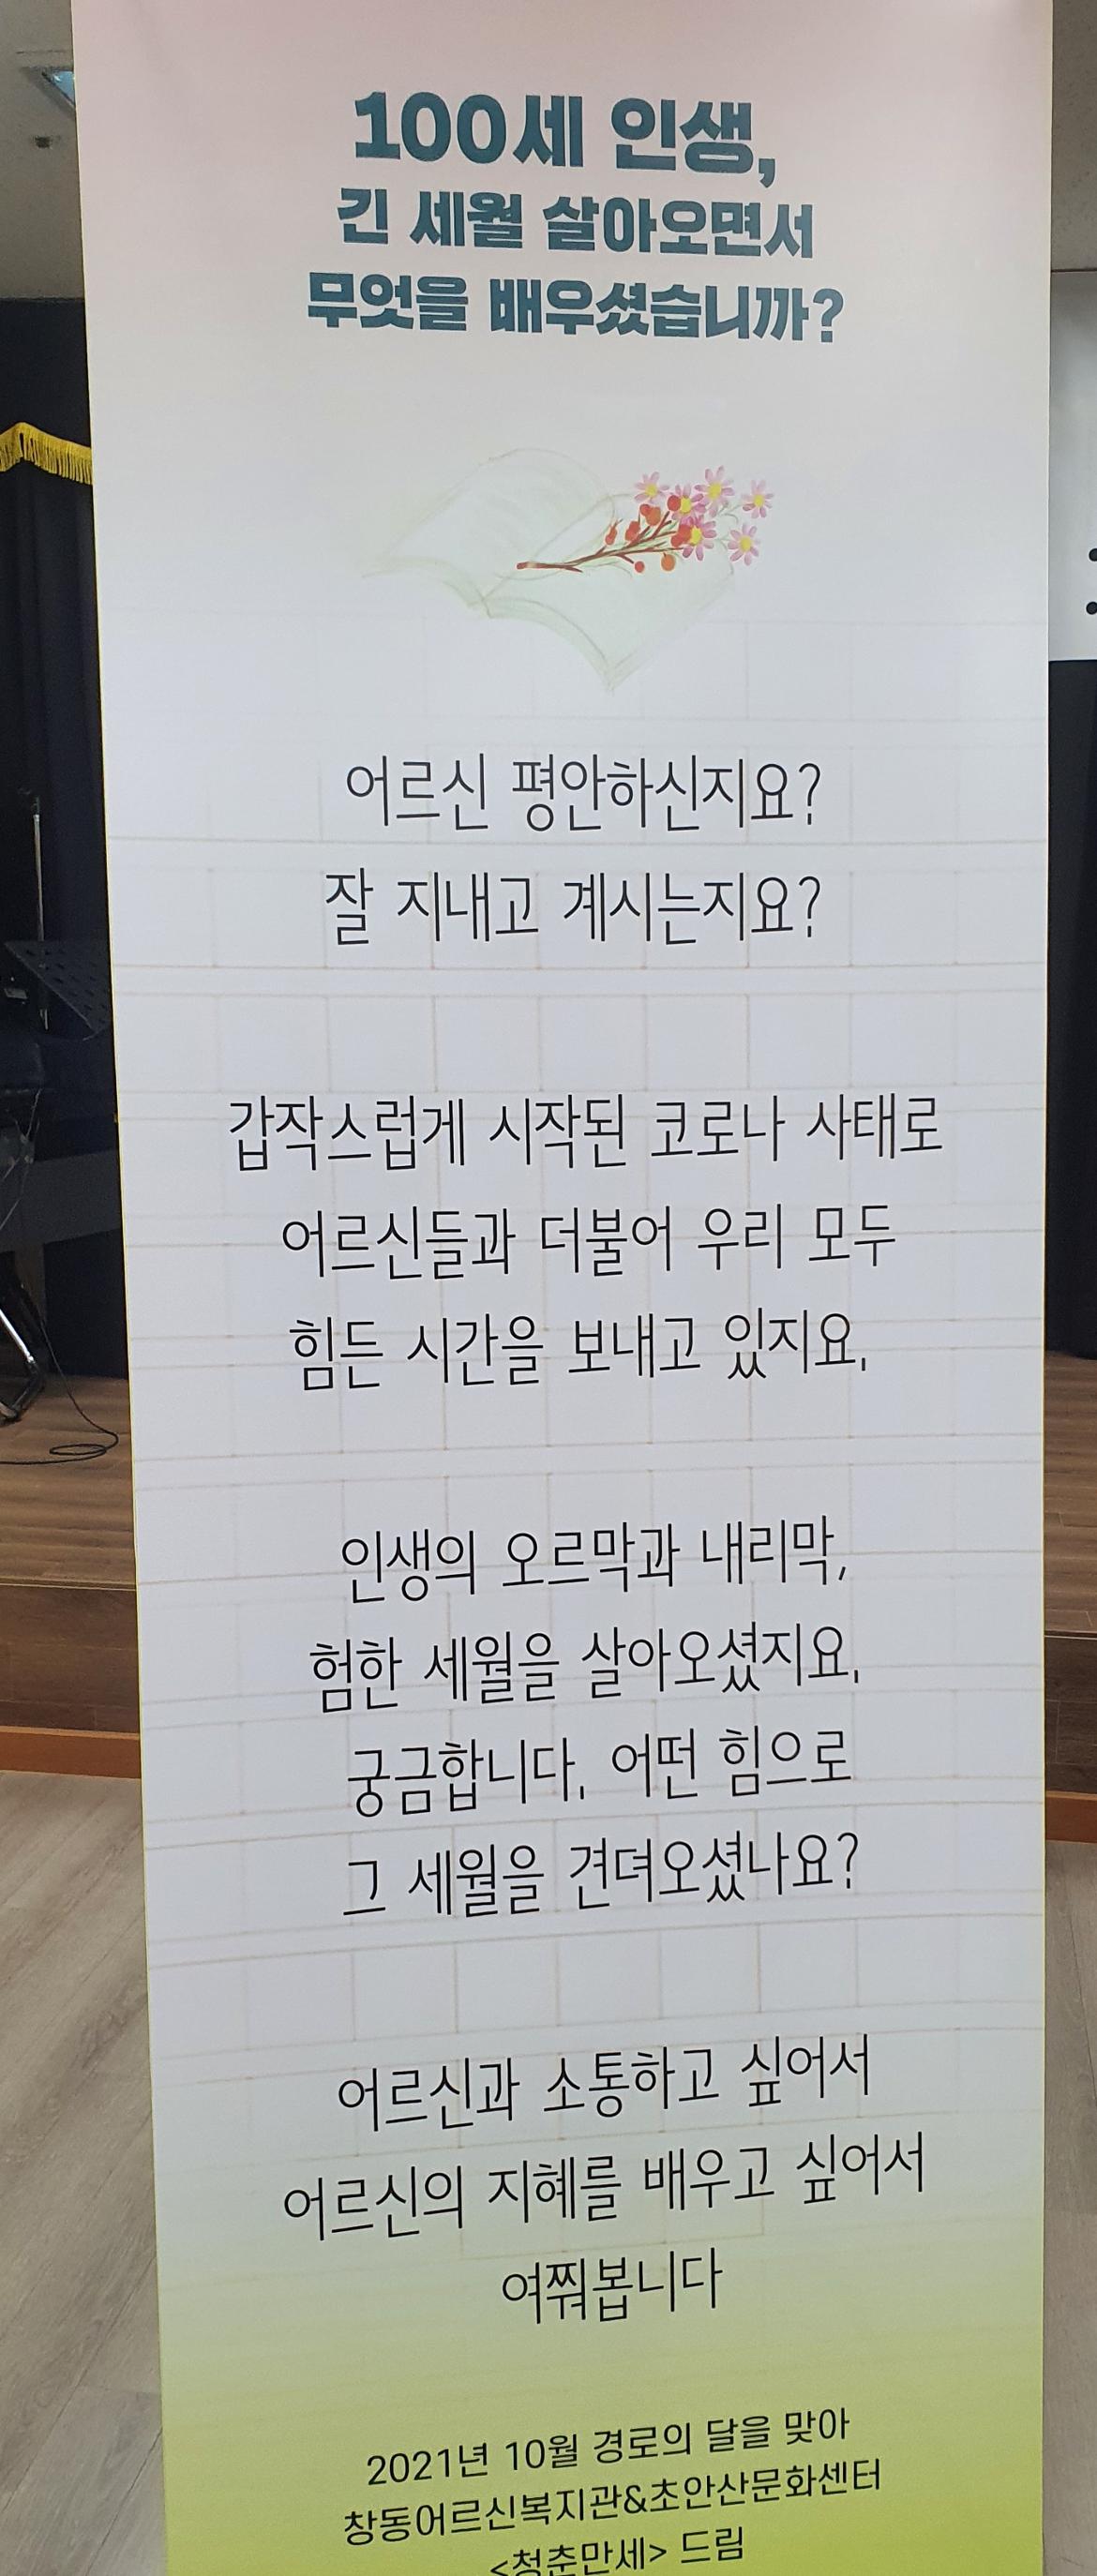 100세 인생,
긴 세월 살아오면서
무엇을 배우셨습니까?
어르신 평안하신지요?
잘 지내고 계시는지요?
갑작스럽게 시작된 코로나 사태로
어르신들과 더불어 우리 모두
힘든 시간을 보내고 있지요.
인생의 오르막과 내리막,
험한 세월을 살아오셨지요.
궁금합니다. 어떤 힘으로
그 세월을 견뎌오셨나요?
어르신과 소통하고 싶어서
어르신의 지혜를 배우고 싶어서
여쭤봅니다
2021년 10월 경로의 달을 맞아
창동어르신복지관&초안산문화센터
<청춘만세> 드림